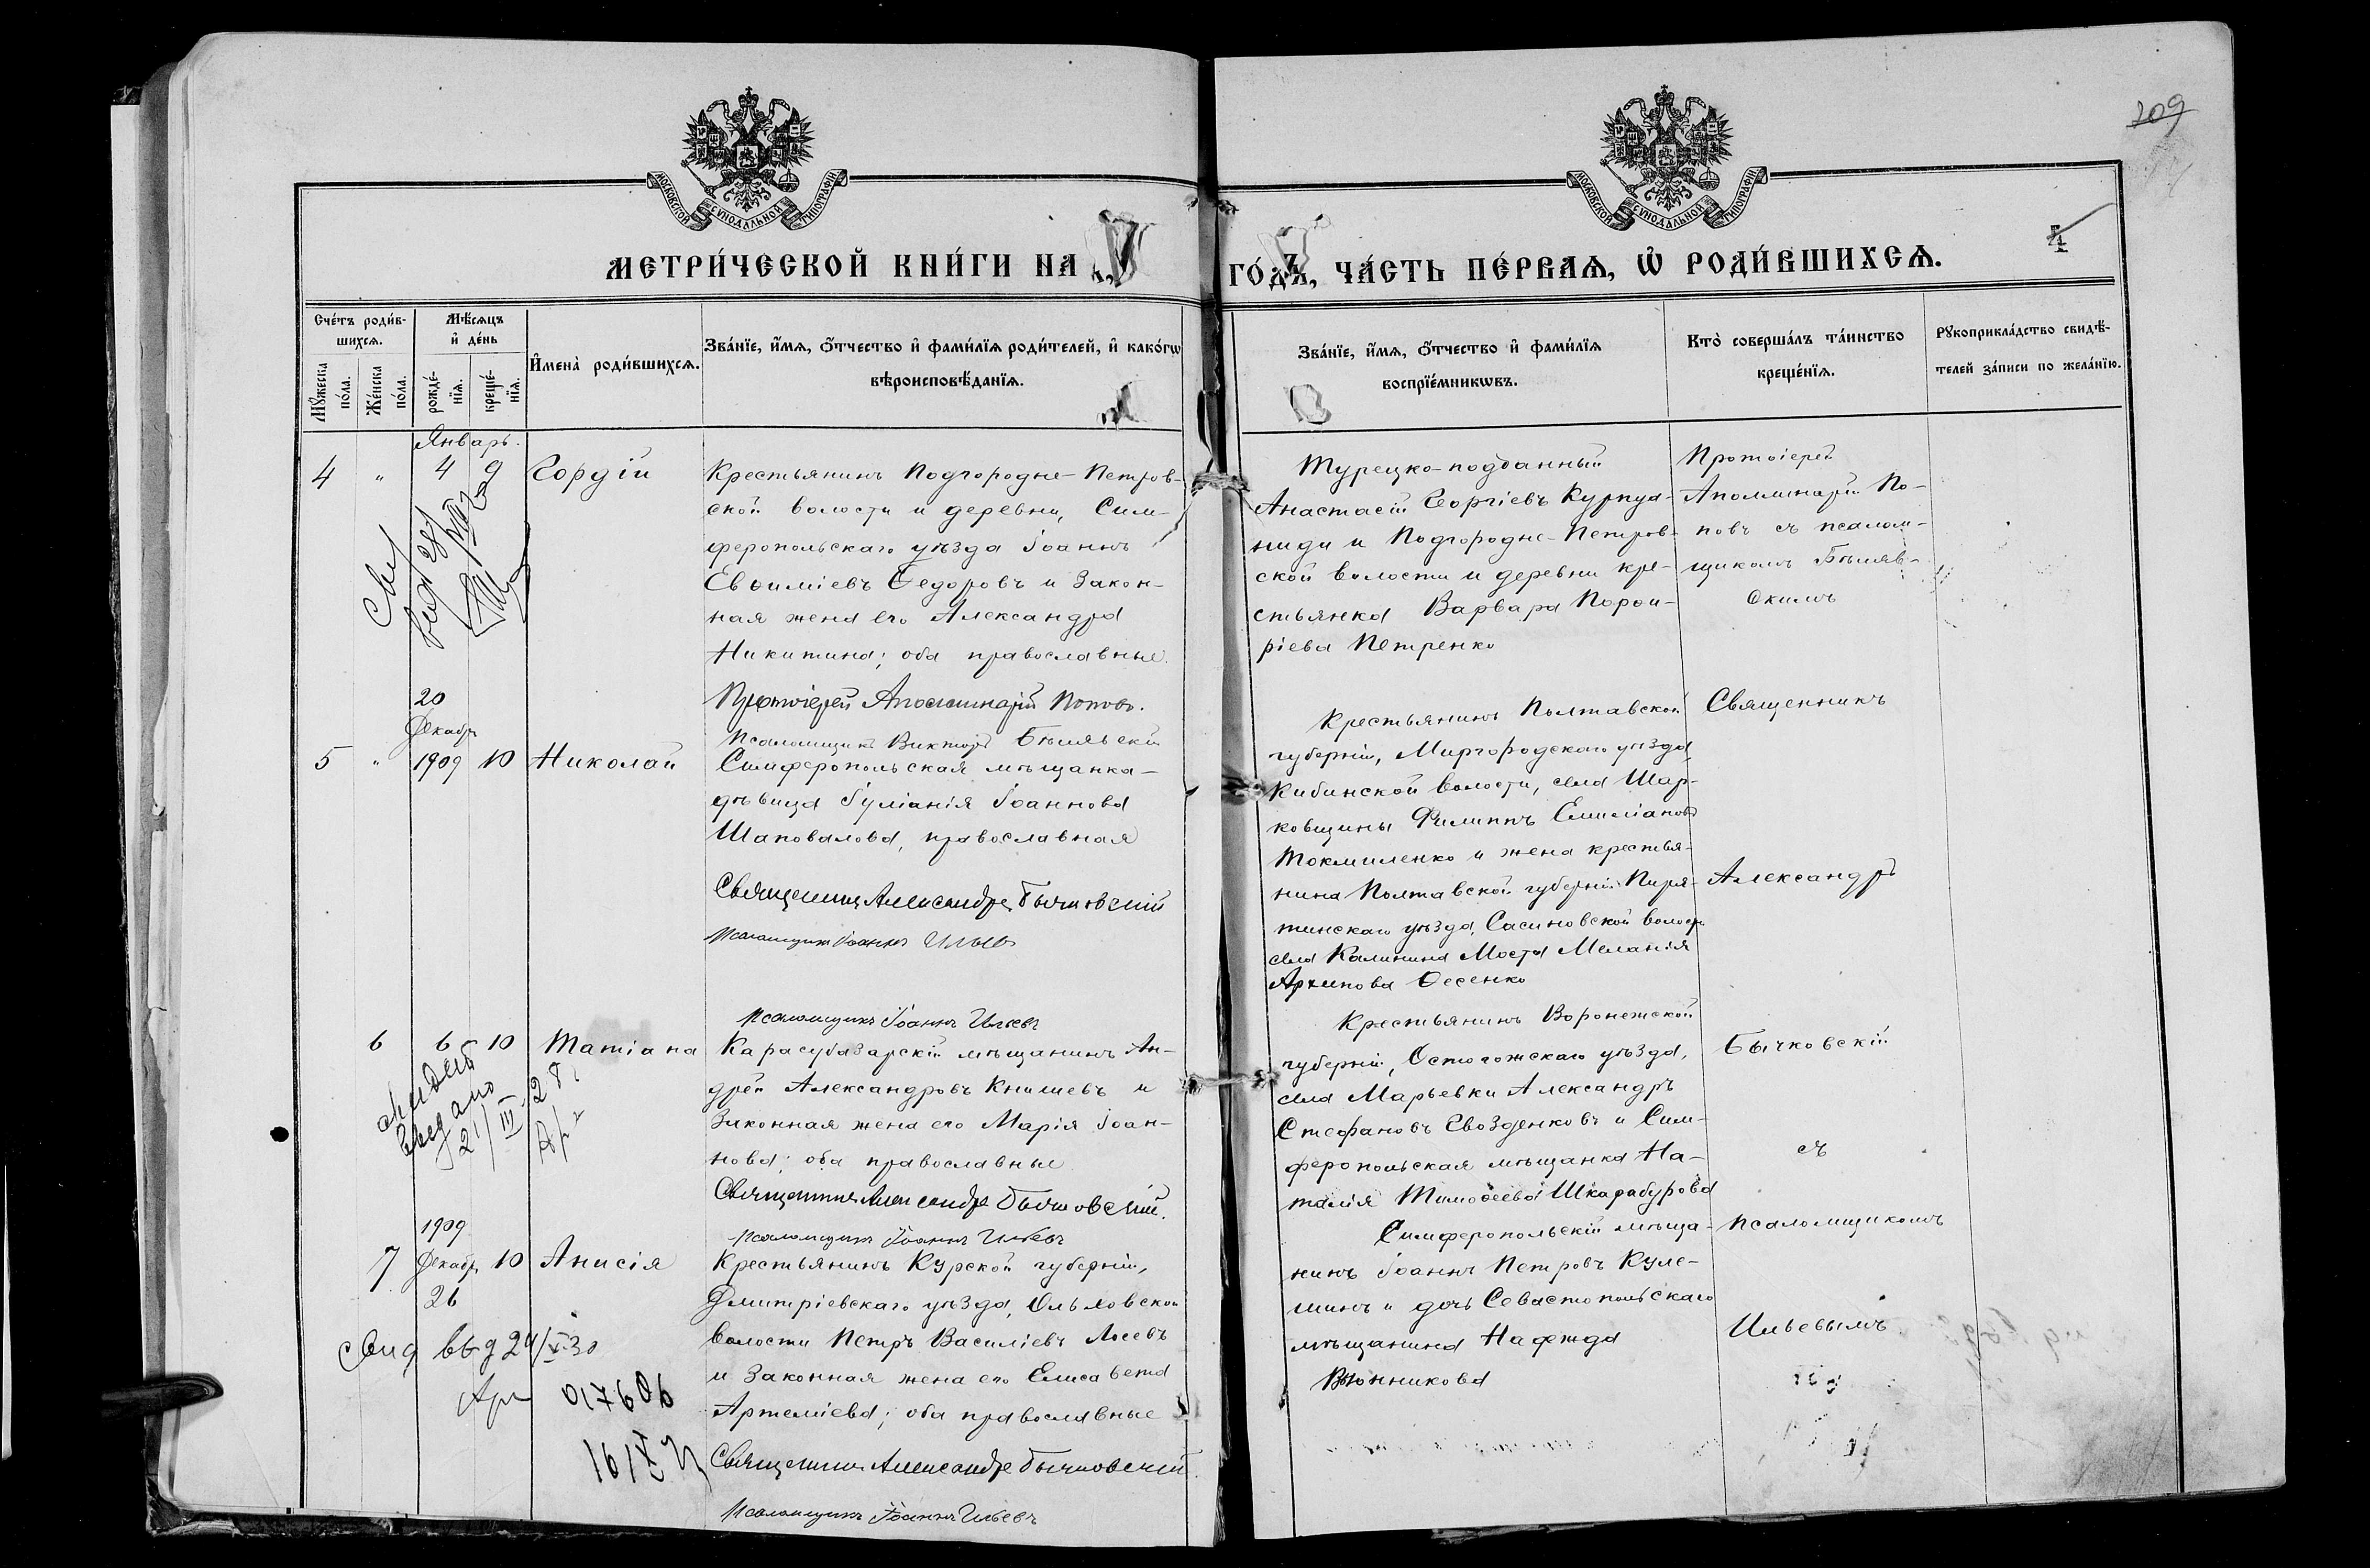 209
МОСКОВСКОЙ СѴНОДАЛЬНОЙ ТИПОГРАФІИ
МОСКОВСКОЙ СѴНОДАЛЬНОЙ ТИПОГРАФІИ
МЕТРИ́ЧЕСКОЙ КНИ́ГИ НА
ГО́ДЪ, ЧА́СТЬ ПЕ́РВАѦ, Ѡ҆ РОДИ́ВШИХСѦ.
4
Сче́тъ роди́в-
шихсѧ.
Мꙋ́жеска по́ла.
Же́нска по́ла.
Мѣ́сѧцъ
и҆ де́нь
рожде́-
нїѧ.
креще́-
нїѧ.
И҆мена̀ роди́вшихсѧ.
Зва́нїе, и҆́мѧ, ѻ҆́тчество и҆ фами́лїѧ роди́телей, и҆ како́гѡ
вѣроисповѣ́данїѧ.
Зва́нїе, и҆́мѧ, ѻ҆́тчество и҆ фами́лїѧ
воспрїе́мникѡвъ.
Кто̀ соверша́лъ та́инство
креще́нїѧ.
Рꙋкоприкла́дство свидѣ́-
телей за́писи по жела́нїю.
Январь.
4 " 4 9 Гордій
Крестьянинъ Подгородне-Петров-
ской волости и деревни, Сим-
феропольскаго уѣзда Іоаннъ
Евѳиміевъ Ѳедоровъ и закон-
ная жена его Александра
Никитина; оба православные.
Протоіерей Аполлинарій Поповъ.
Псаломщикъ Викторъ Бѣлявскій
Турецко-подданный
Анастасій Георгіевъ Курпуа-
ниди и Подгородне-Петров-
ской волости и деревни кре-
стьянка Варвара Порфи-
ріева Петренко
Протоіерей
Аполлинарій По-
повъ съ псалом-
щикомъ Бѣляв-
скимъ
20
Декабр
5 " 1909 10 Николай
Симферопольская мѣщанка-
дѣвица Іуліанія Іоаннова
Шаповалова, православная
Священникъ Александръ Бычковскій
Псаломщикъ Іоаннъ Ильевъ
Крестьянинъ Полтавской
губерніи, Миргородскаго уѣзда,
Кибинской волости, села Шар-
ковщины Филиппъ Емиліановъ
Токмиленко и жена крестья-
нина Полтавской губерніи Пиря-
тинскаго уѣзда, Сасиновской волости
села Калинина Моста Меланія
Архипова Фесенко
Священникъ
Александръ
Псаломщикъ Іоаннъ Ильевъ
6 6 10 Татіана
Карасубазарскій мѣщанинъ Ан-
дрей Александровъ Княшевъ и
законная жена его Марія Іоан-
нова; оба православные
Священникъ Александръ Бычковскій.
Псаломщикъ Іоаннъ Ильевъ
21/III 28
Крестьянинъ Воронежской
губерніи, Острогожскаго уѣзда,
села Марьевки Александръ
Стефановъ Гвозденковъ и Сим-
феропольская мѣщанка На-
талія Тимоѳеева Шкарабурова
Бычковскій
съ
1909
7 Декабр 10 Анисія
26
Крестьянинъ Курской губерніи,
Дмитріевскаго уѣзда, Ольховской
волости Петръ Василіевъ Лосевъ
и законная жена его Елисавета
Артеміева; оба православные
Священникъ Александръ Бычковскій.
Псаломщикъ Іоаннъ Ильевъ
Симферопольскій мѣща-
нинъ Іоаннъ Петровъ Куле-
шинъ и дочь Севастопольскаго
мѣщанина Надежда
Вьюнникова
псаломщикомъ
Ильевымъ
017606